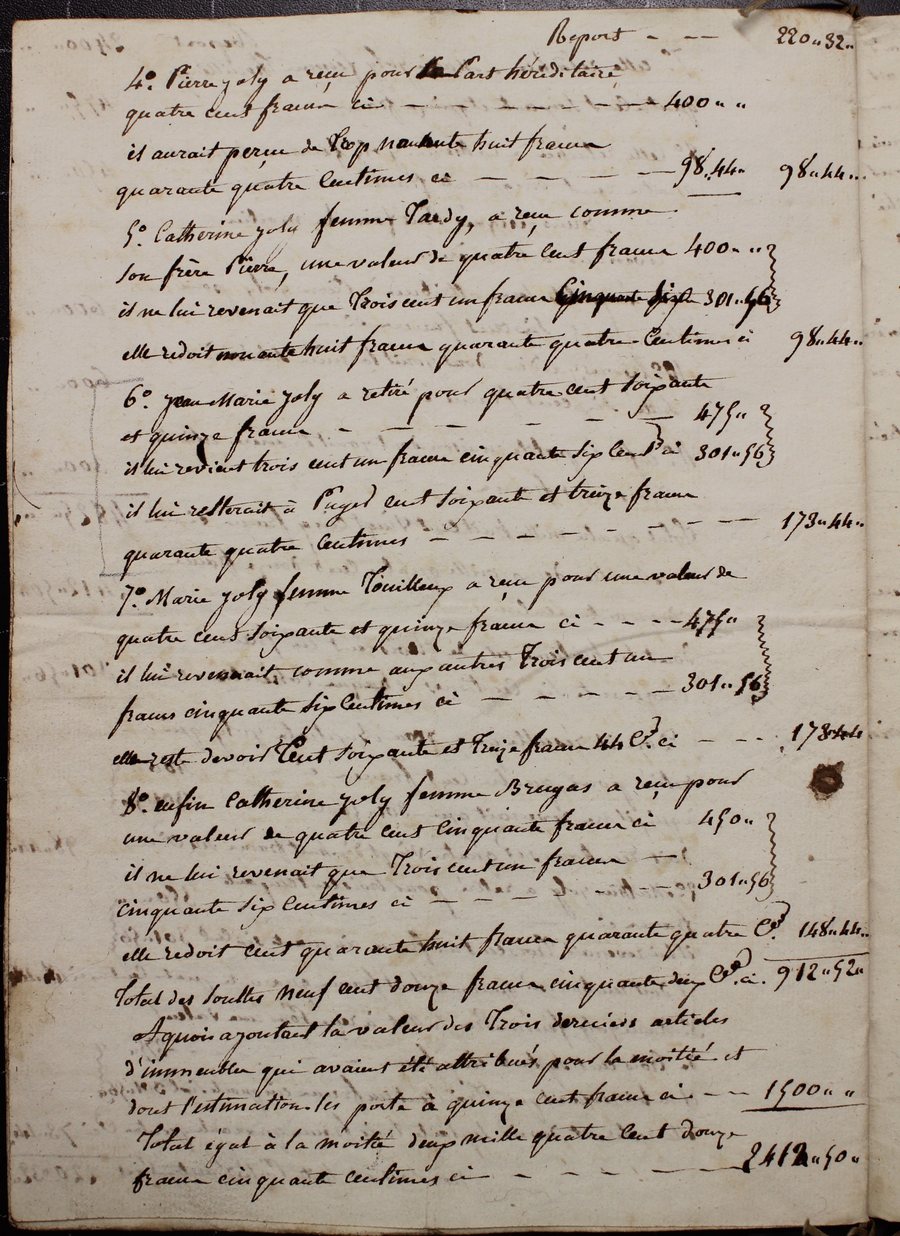 Report - — — 220 " 32 "
4°. Pierre joly a reçu pour sa Part héréditaire
quatre cent francs ci — — — — — — 400 " "
il aurait perçu de Trop nonante huit francs
quarante quatre Centimes ci — — — — — 98 " 44 " 98 " 44 "
5°. Catherine joly femme Tardy, a reçu comme
son frère Pierre, une valeur de quatre cent francs 400 " "
il ne lui revenait que Trois cent un francs Cinquante six 301 " 56
elle redoit nonante huit francs quarante quatre Centimes ci 98 " 44 "
6°. jean Marie joly a retiré pour quatre cent soixante
et quinze francs - — — — — — — 475 "
il lui revient trois cent un francs cinquante six Cent.s ci 301 " 56
il lui resterait à Payer cent soixante et treize francs
quarante quatre Centimes — — — — — — — — 173 " 44 "
7°. Marie joly femme Touilleux a reçu pour une valeur de
quatre cent soixante et quinze francs ci - - - - 475 "
il lui revenait comme aux autres Trois cent un
francs cinquante six Centimes ci — — — — — — 301 " 56
elle reste devoir Cent soixante et Treize francs 44 C.s ci - — — 173 " 44
8°. enfin Catherine joly femme Brugas a reçu pour
une valeur de quatre cent Cinquante francs ci 450 "
il ne lui revenait que Trois cent un francs —
cinquante six Centimes ci — — — — — — — 301 " 56
elle redoit cent quarante huit francs quarante quatre C.s 148 " 44 "
Total des soultes neuf cent douze francs cinquante deux C.s ci. 912 " 52 "
A quoi ajoutant la valeur des Trois derniers articles
d'immeubles qui avaient été attribués pour la moitié et
dont l'estimation les porte à quinze cent francs ci — — 1500 " "
Total égal à la moitié deux mille quatre Cent douze
francs cinquante centimes ci — — — — — — 2412 " 50 "